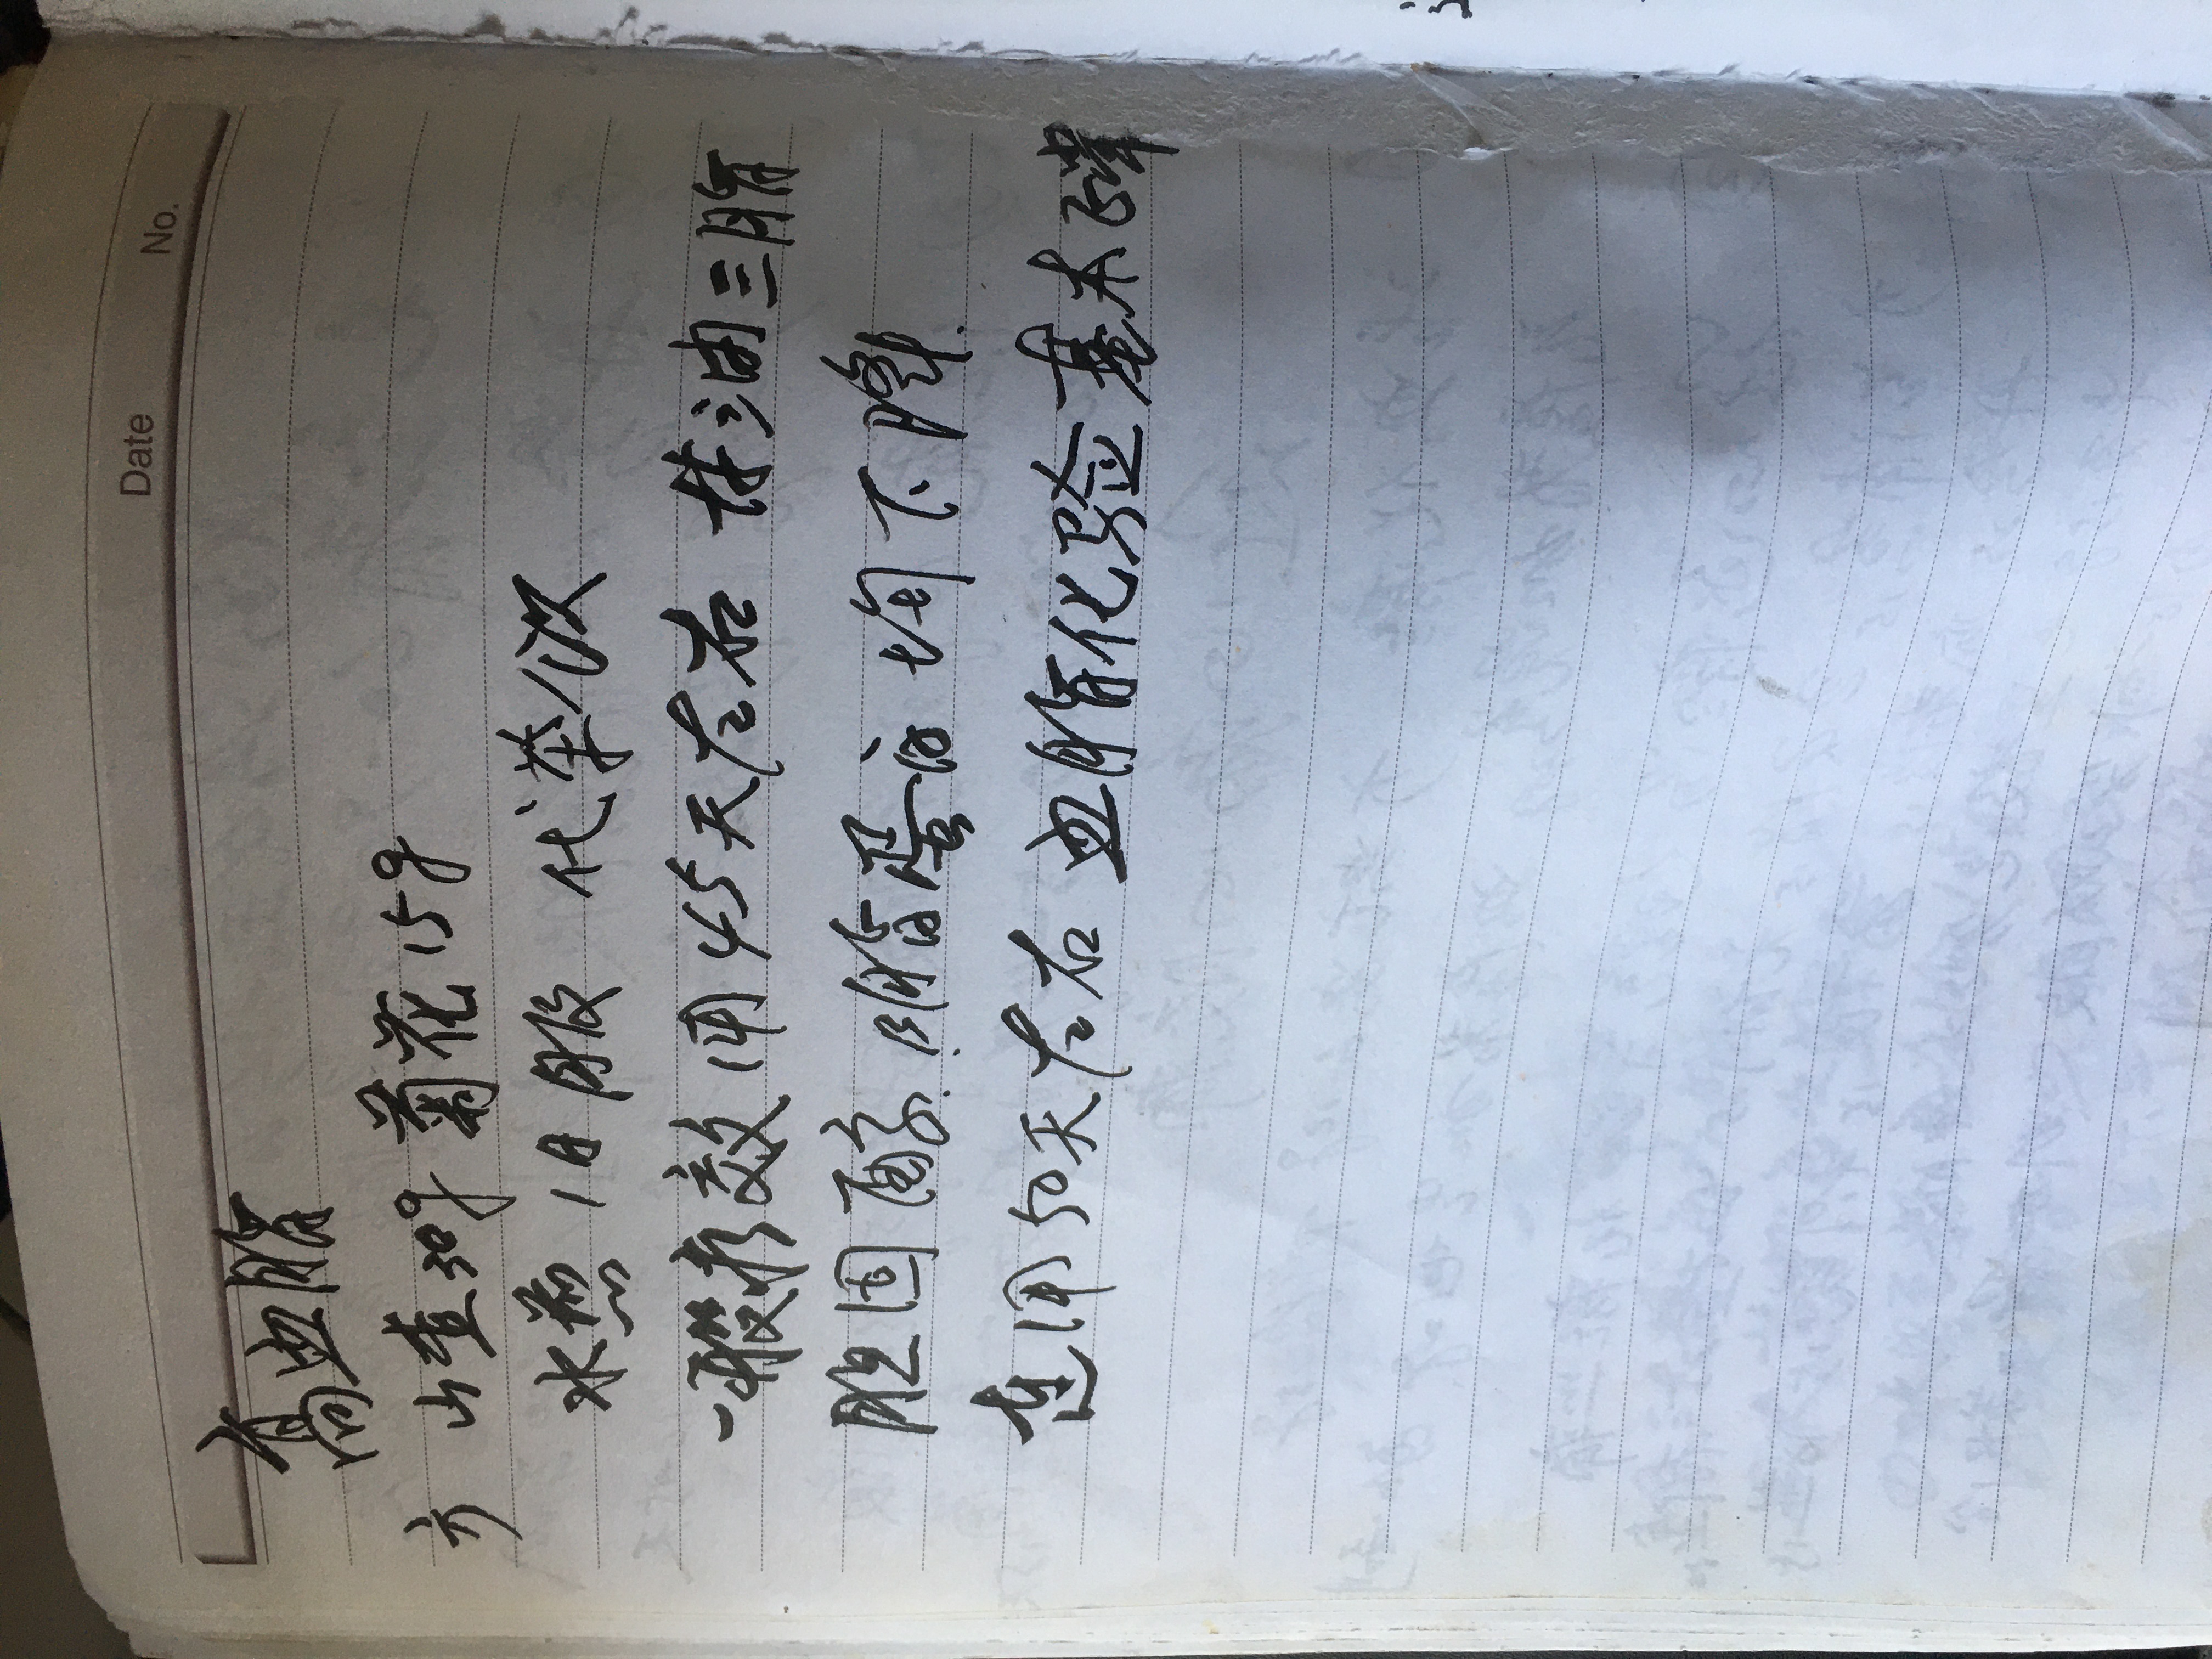 Date No.
高血脂
方 山查30g 菊花15g
水煎 1日服 代茶饮
一般疗效 用45天左右 甘油三脂
胆固醇. 脂蛋白 均下降.
连用50天左右 血脂化验基本正常